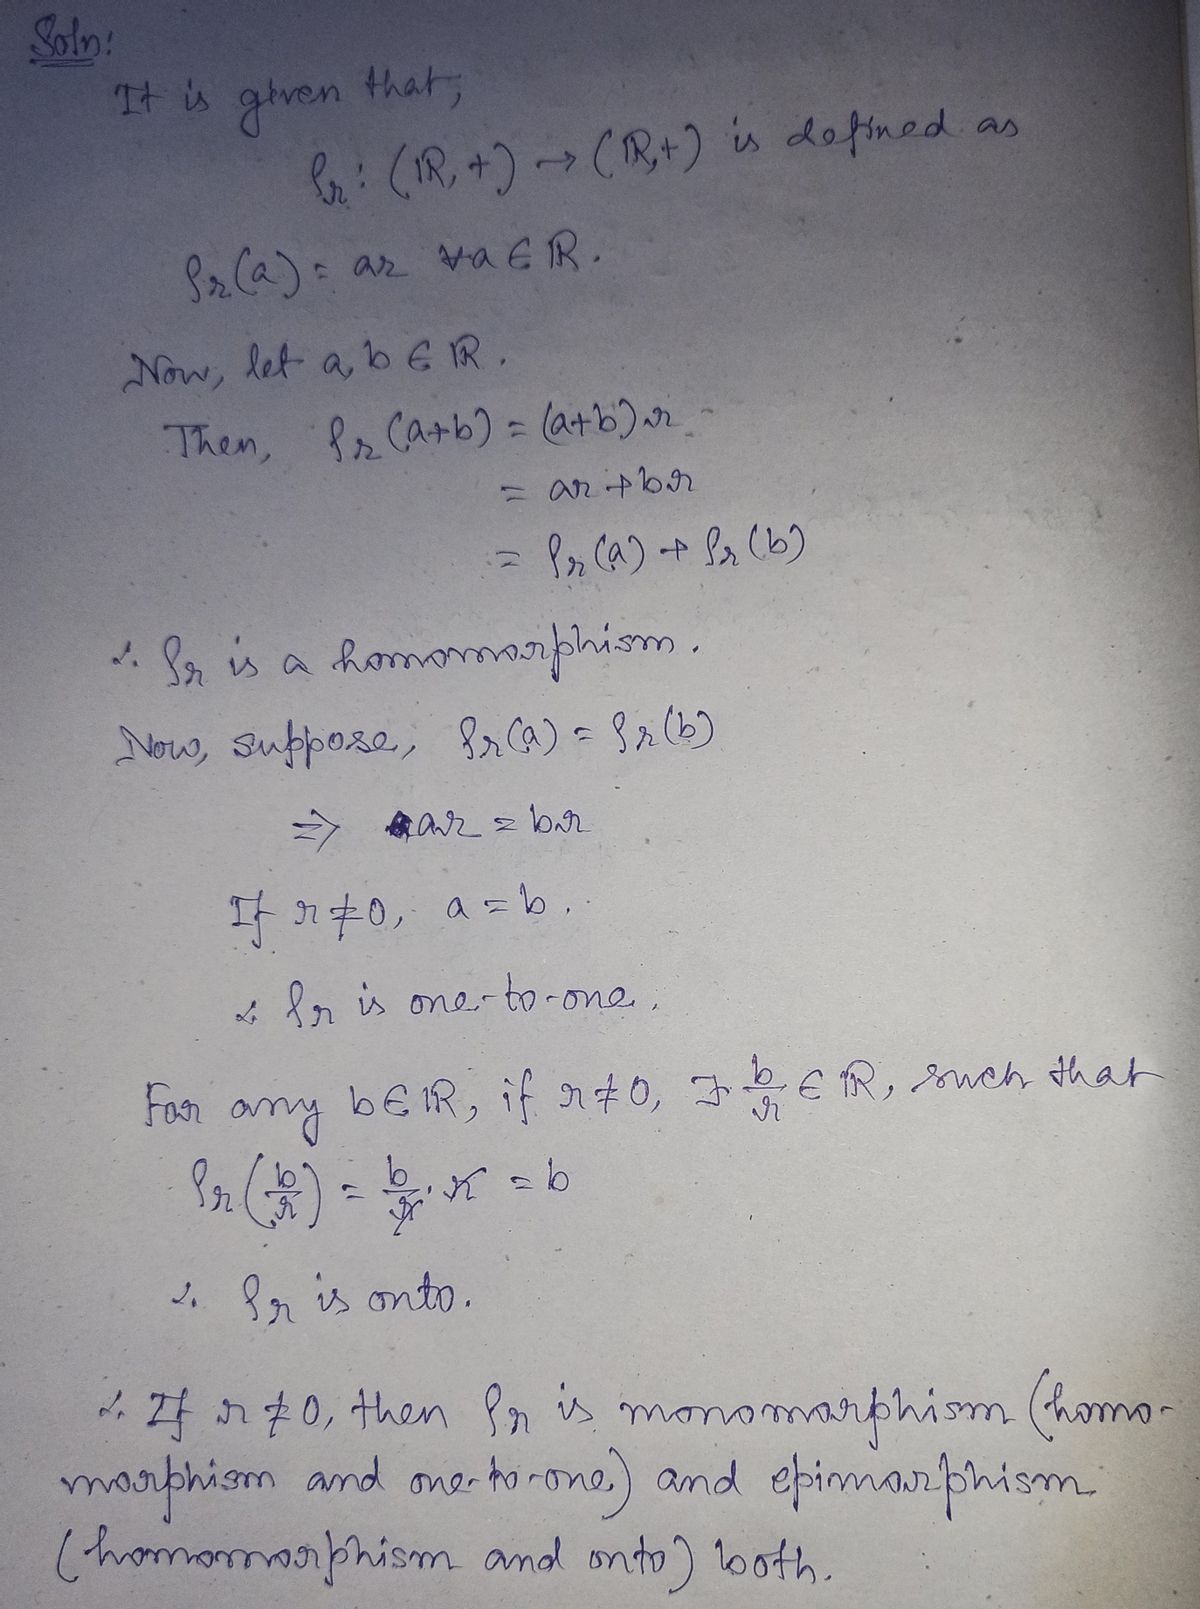 Soln:
It is given that,
ρr: (ℝ, +) → (ℝ, +) is defined as
ρr(a) = ar ∀a ∈ ℝ.
Now, let a, b ∈ ℝ.
Then, ρr(a+b) = (a+b)r
= ar + br
= ρr(a) + ρr(b)
∴ ρr is a homomorphism.
Now, suppose, ρr(a) = ρr(b)
⇒ ar = br
If r ≠ 0, a = b.
∴ ρr is one-to-one.
For any b ∈ ℝ, if r ≠ 0, ∃ b/r ∈ ℝ, such that
ρr(b/r) = b/r · r = b
∴ ρr is onto.
∴ If r ≠ 0, then ρr is monomorphism (homo-
morphism and one-to-one) and epimorphism
(homomorphism and onto) both.